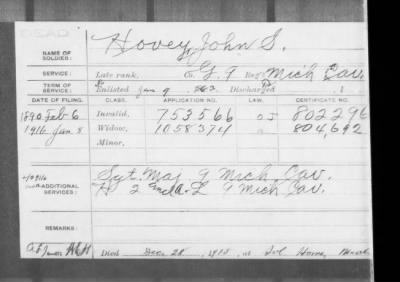 DEAD
NAME OF SOLDIER: Hovey, John S.
SERVICE: Late rank, Co. G. 9 Reg't Mich Cav.
TERM OF SERVICE: Enlisted Jan 9 1863. Discharged
DATE OF FILING. CLASS. APPLICATION NO. LAW. CERTIFICATE NO.
1890 Feb 6 Invalid, 753566 802296
1916 Jan. 8 Widow, 1058374 804,692
Minor,
ADDITIONAL SERVICES: Sgt. Maj 9 Mich. Cav.
2 L 9 Mich. Cav.
REMARKS:
Died Dec. 28, 1915, at Sol Home,